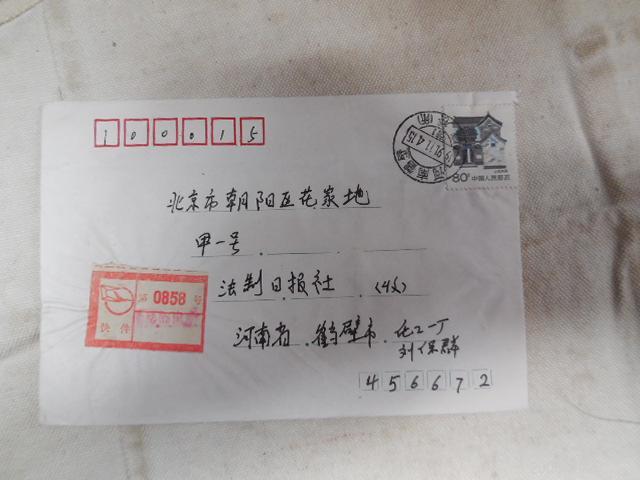 100015
80分 中国人民邮政
北京市朝阳区花家地
甲一号
第 0858 号
快件
法制日报社 (收)
河南省 鹤壁市 化工厂
刘保群
456672